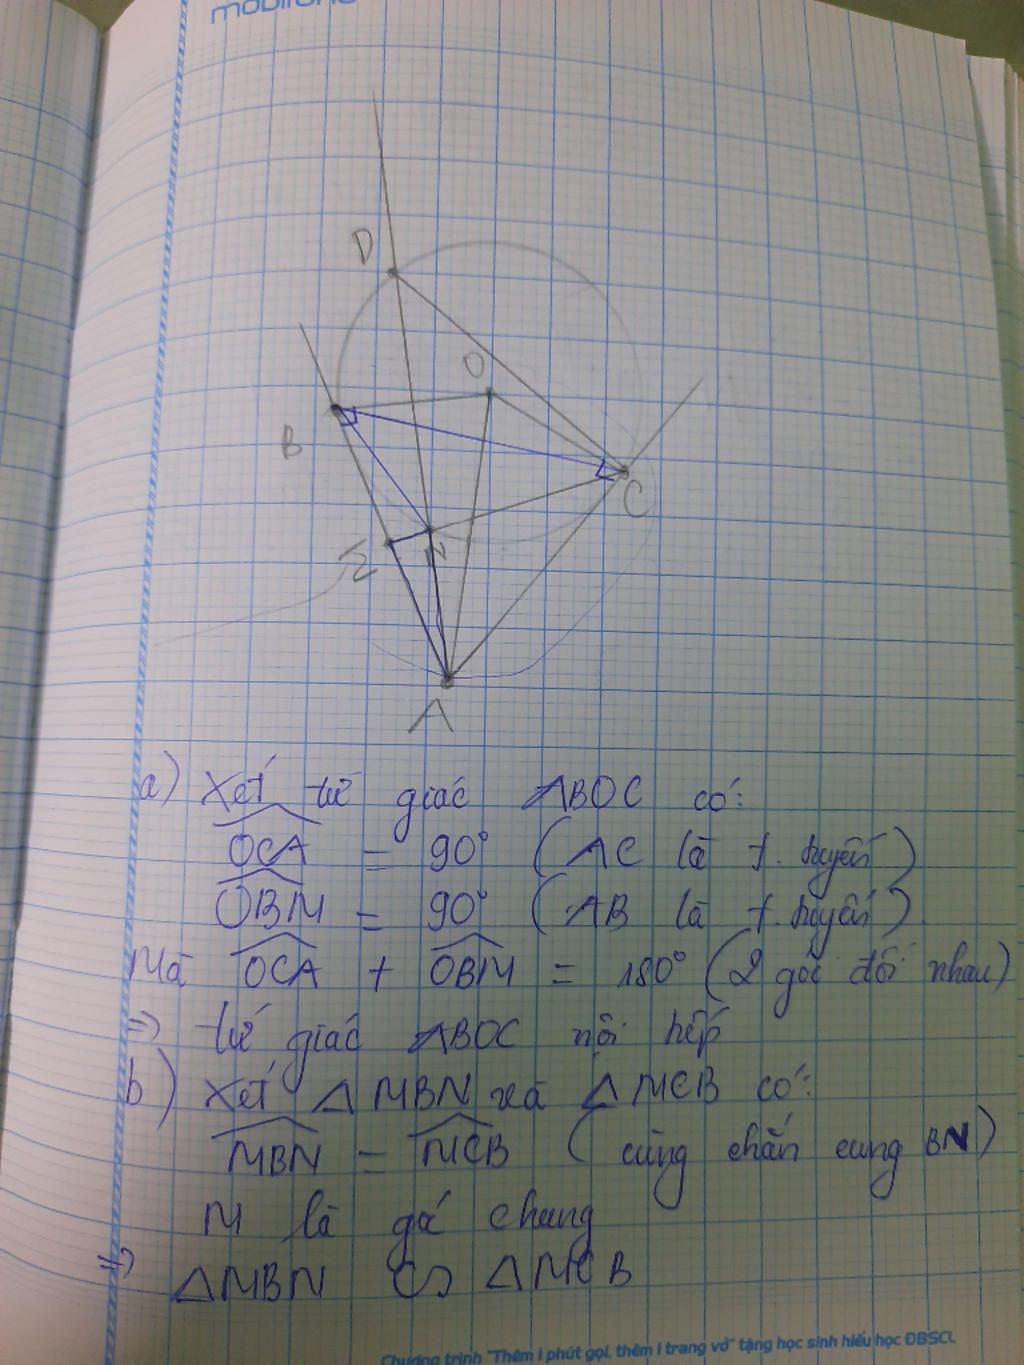 mobifone
D
O
B
C
N
A
a) Xét tứ giác ABOC có:
OCA = 90° (AC là t. tuyến)
OBM = 90° (AB là t. tuyến)
Mà OCA + OBM = 180° (2 góc đối nhau)
=> tứ giác ABOC nội tiếp
b) Xét Δ MBN và Δ MCB có:
MBN = MCB (cùng chắn cung BN)
M là gó chung
=> ΔMBN ∽ ΔMCB
Chương trình "Thêm 1 phút gọi, thêm 1 trang vở" tặng học sinh hiếu học ĐBSCL